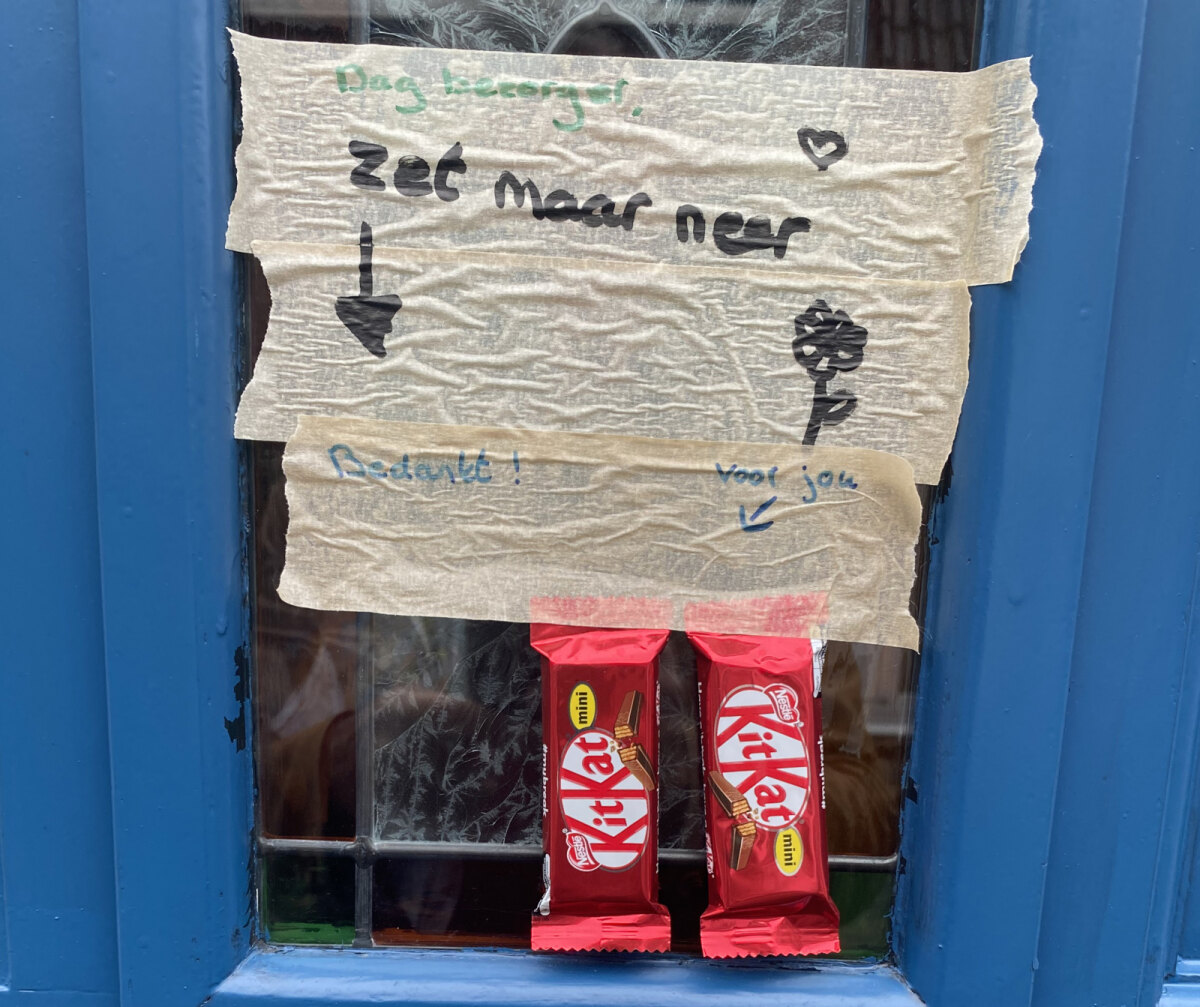 Dag bezorger,
zet maar neer
Bedankt!
voor jou
mini
KitKat
Nestlé
Nestlé
KitKat
mini
#mybreak